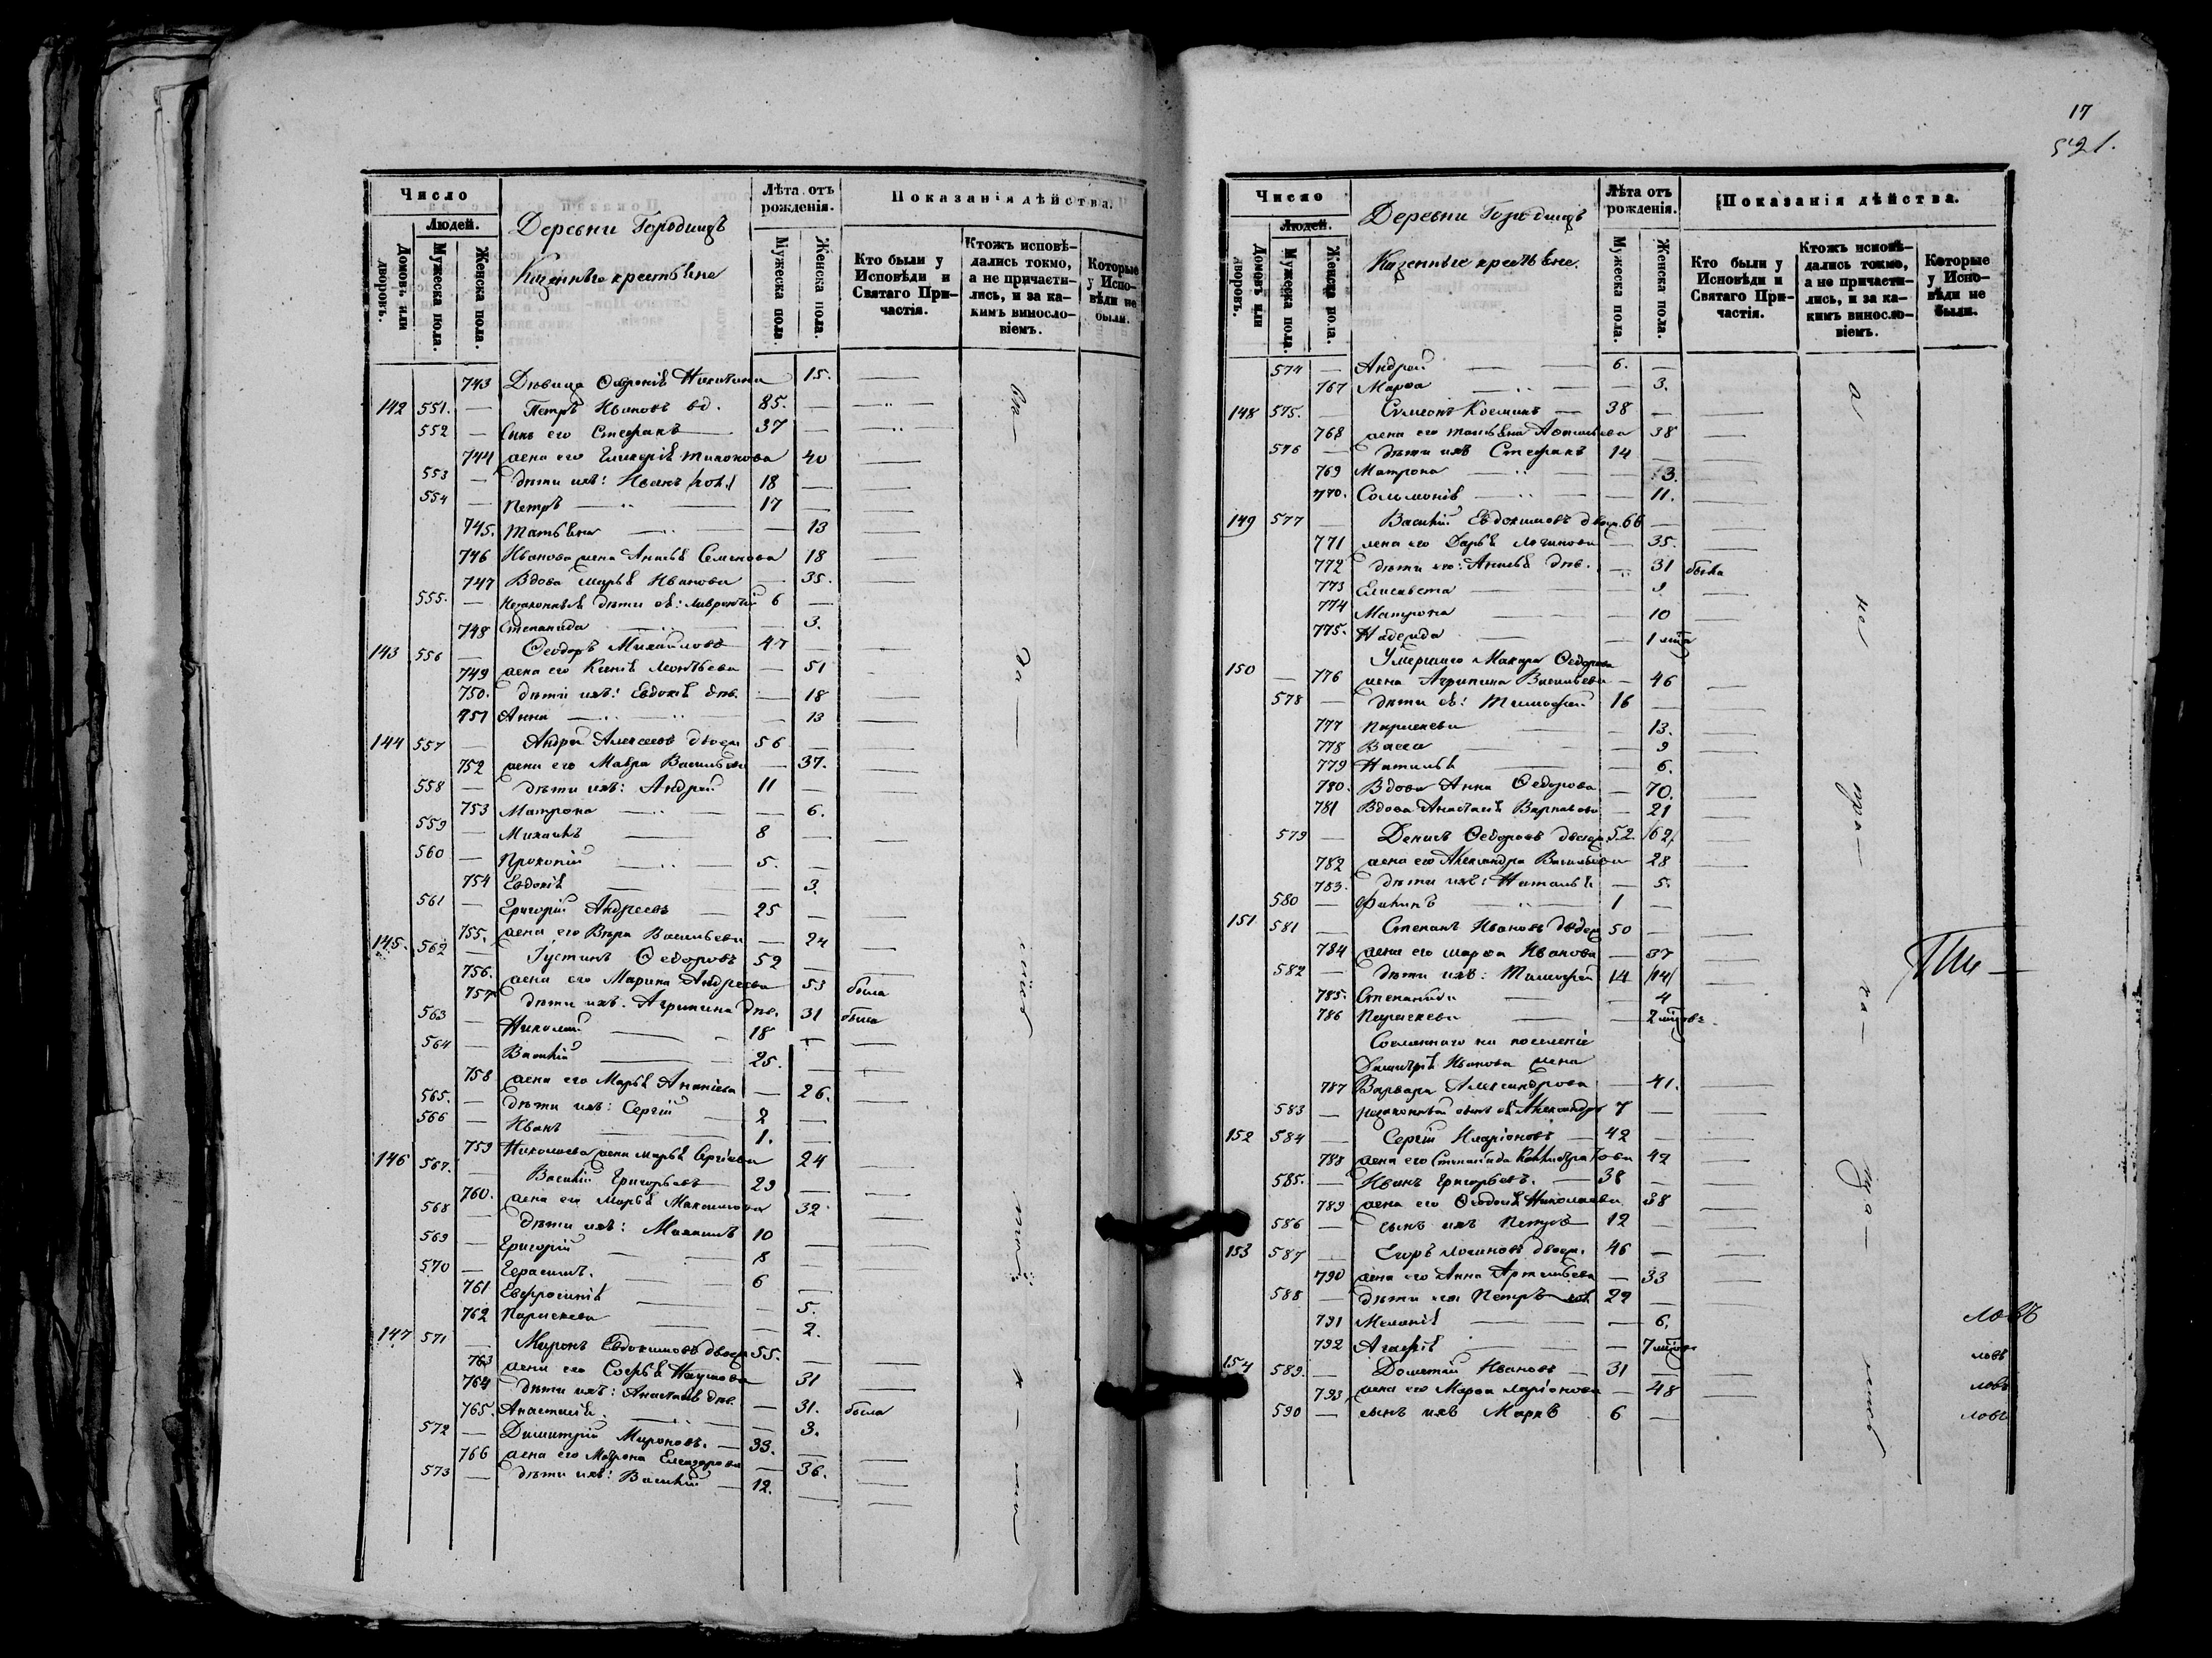 Число
Людей.
Домовъ или дворовъ.
Мужеска пола.
Женска пола.
Деревни Городищъ
Казенные крестьяне
Лѣта отъ рожденія.
Мужеска пола.
Женска пола.
Показанія дѣйства.
Кто были у Исповѣди и Святаго Причастія.
Ктожъ исповѣдались токмо, а не причастились, и за какимъ винословіемъ.
Которые у Исповѣди не были.
743 Дѣвица Никитина 15.
142 551. — Петръ Ивановъ вд. 85. —
552 — Сынъ его Стефанъ 37 —
744 жена его Гликерія Тихонова 40
553 — дѣти ихъ: Иванъ 18 —
554 — Петръ 17 —
745. Татьяна — 13
746 Иванова жена Анисья Семенова 18
747 Вдова Марья Иванова — 35.
555. — Незаконные дѣти ея: Лаврентій 6 —
748 Степанида — 3.
143 556 — Ѳеодоръ Михайловъ 47 —
749 жена его Ксенія Леонтьева — 51
750. дѣти ихъ: Евдокія дѣв. — 18
751 Анна — 13
144 557 — Андрей Алексеевъ двоеж 56 —
752 жена его Мавра Васильева — 37.
558 — дѣти ихъ: Андрей 11 —
753 Матрона — 6.
559 — Михаилъ 8 —
560 — Прокопій 5. —
754 Евдокія — 3.
561 — Григорій Андреевъ 25 —
755. жена его Вѣра Васильева — 24
145. 562 — Іустинъ Ѳедоровъ 52 —
756. жена его Марина Андреева 53 была
757 дѣти ихъ. Агрипина дѣв. 31 была
563 — Николай 18 —
564 — Василій 25. —
758 жена его Марья Ананіева — 26.
565. — дѣти ихъ: Сергій 2 —
566 — Иванъ 1. —
759 Николаева жена Марья Сергіева 24
146 567. — Василій Григорьевъ 29 —
760. жена его Марья Максимова 32
568 — дѣти ихъ: Максимъ 10 —
569 — Григорій 8 —
570 — Герасимъ. 6 —
761 Евфросинія — 5.
762 Параскева — 2.
147 571 — Миронъ Евдокимовъ двоеж 55. —
763 жена его Софья Наумова 31
764 дѣти ихъ: Анастасія дѣв. — 31. была
765. Анастасія. — 3.
572 — Димитрій Мироновъ. — 33. —
766 жена его Матрона Елеазарова — 36.
573 — дѣти ихъ: Василій — 12. —
17
521.
Число
Людей.
Домовъ или дворовъ.
Мужеска пола.
Женска пола.
Деревни Городищъ
Казенные крестьяне.
Лѣта отъ рожденія.
Мужеска пола.
Женска пола.
Показанія дѣйства.
Кто были у Исповѣди и Святаго Причастія.
Ктожъ исповѣдались токмо, а не причастились, и за какимъ винословіемъ.
Которые у Исповѣди не были.
574 — Андрей 6. —
767 Марѳа 3.
148 575. — Сумеонъ Косминъ 38 —
768 жена его Татьяна 38
576 — дѣти ихъ Стефанъ 14 —
769 Матрона 13.
770. Соломонія 11.
149 577 — Василій Евдокимовъ двоеж. 66 —
771 жена его Дарья Логинова — 35.
772 дѣти его: Анисья дѣв. 31 была
773 Елисавета — 9
774 Матрона — 10
775. Надежда — 1
150 Умершаго Макара Ѳедорова
— 776 жена Агрипина Васильева — 46
578 — дѣти ея: Тимофей 16 —
777 Параскева — 13.
778 Васса — 9
779 Наталья — 6.
780. Вдова Анна Ѳедорова — 70.
781 Вдова Анастасія — 21
579 — Денисъ Ѳедоровъ двоеж 52. /62/
782 жена его Александра Васильева 28
783. дѣти ихъ: Наталья — 5.
580 — Филипъ 1 —
151 581 — Степанъ Ивановъ двоеж 50 —
784 жена его Марѳа Иванова — 37
582 — дѣти ихъ: Тимофей 14 /14/
785. Степанида — 4
786 Параскева — 2
Сосланнаго на поселеніе
Димитрія Иванова жена
787 Варвара Александрова — 41.
583 — незаконный сынъ ея Александръ 7 —
152 584 — Сергій Иларіоновъ 42 —
788 жена его Степанида 42
585. — Иванъ Григорьевъ. — 38 —
789 жена его Ѳеодосія Николаева 38
586 — сынъ ихъ Петръ 12 —
153 587 — Егоръ Логиновъ двоеж. 46 —
790 жена его Анна Артемьева — 33
588 — дѣти его Петръ 22 —
791 Меланія — 6.
792 Агафія — 7
154 589. — Дометій Ивановъ — 31 —
793 жена его Марѳа Ларіонова — 48
590 — сынъ ихъ Маркъ 6 —